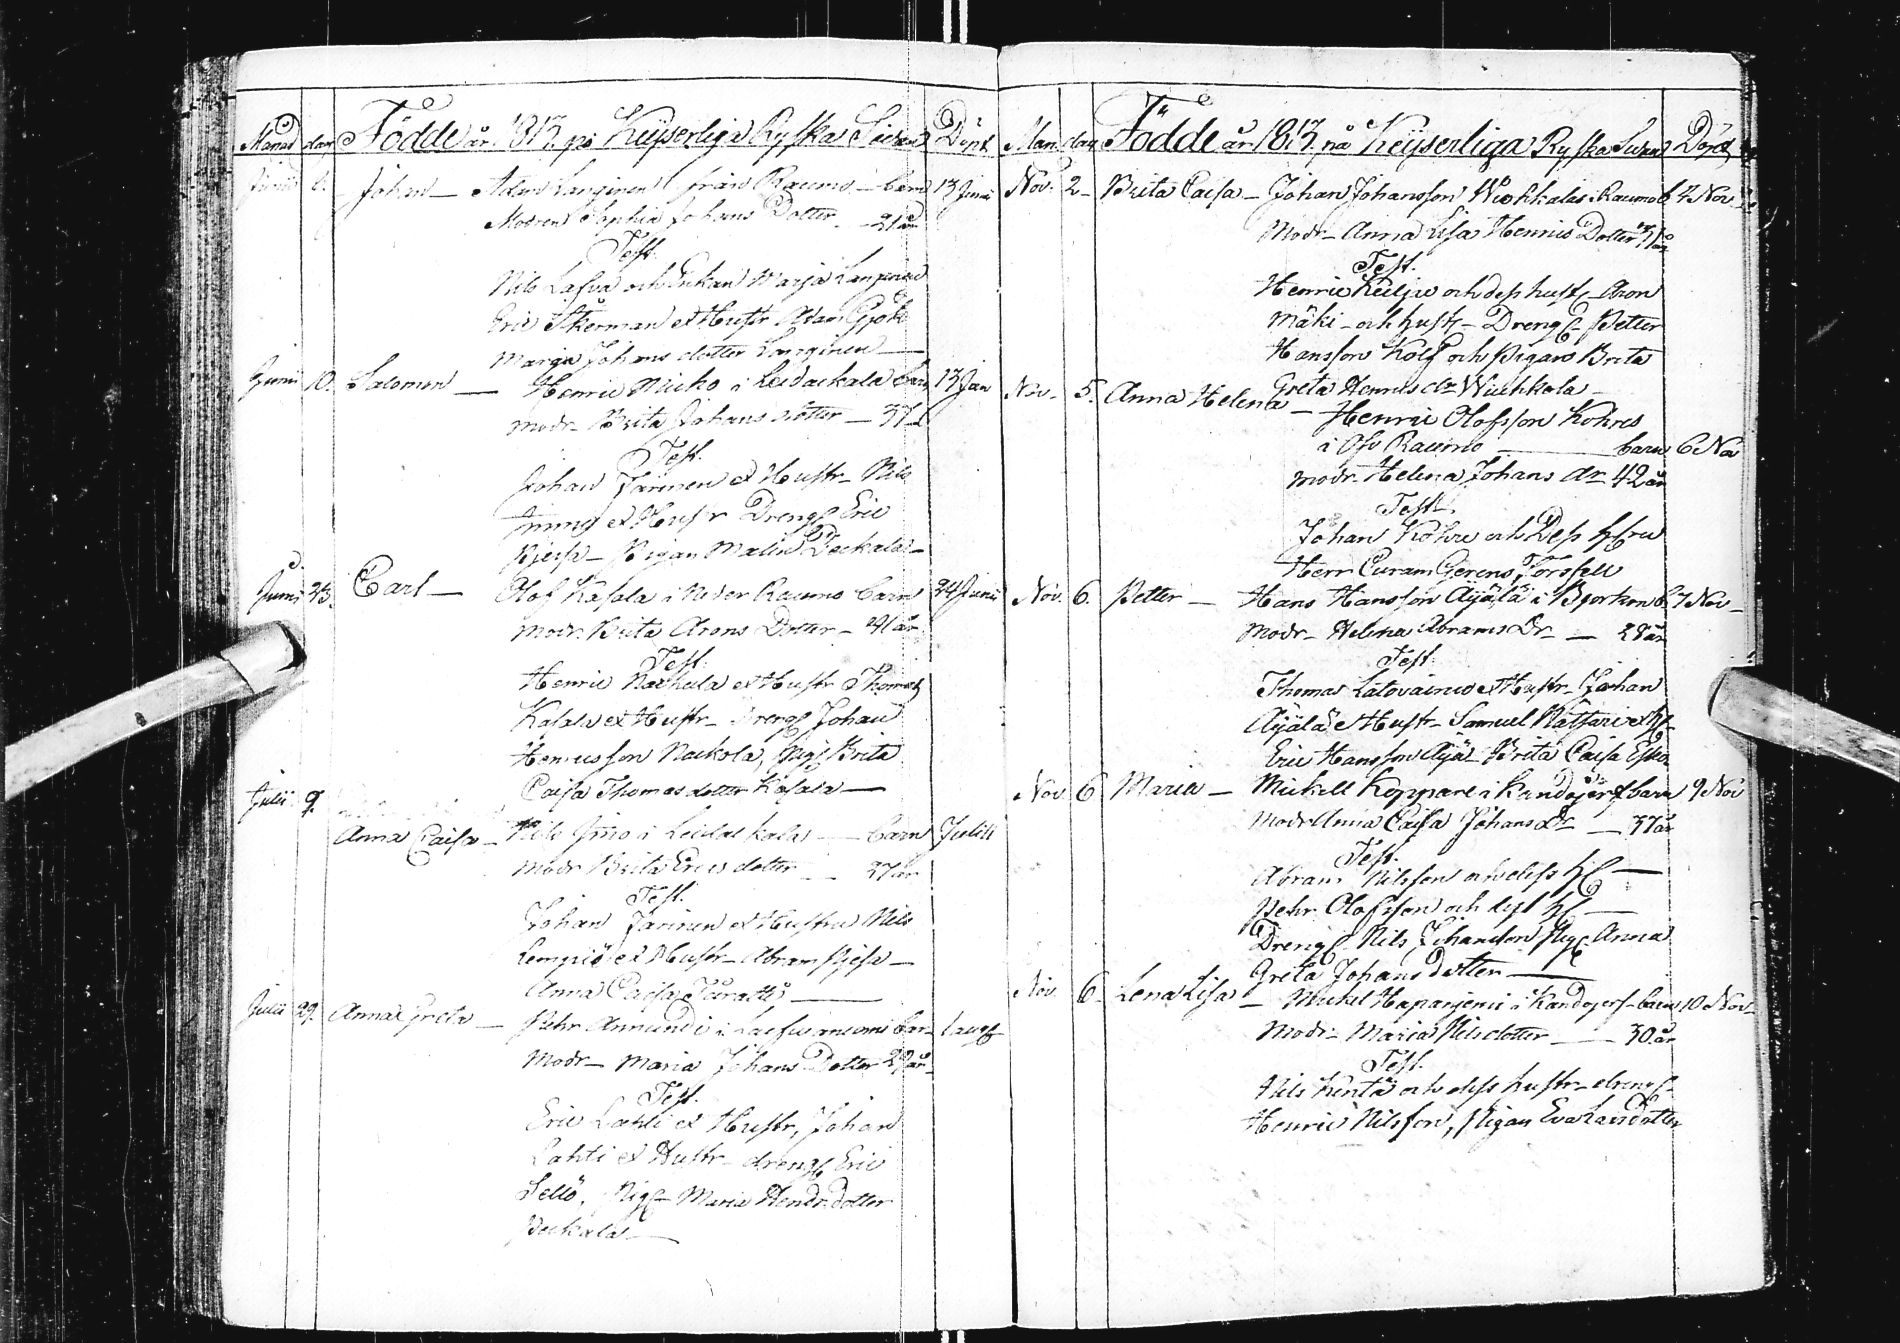 Månad dar Födde år 1813 på Keyserliga Ryska Sidan Döpt
Junii 6. Johan — Adam Langinen från Raumo — barn 13 Junii
Modren Sophia Johans Dotter — 31 år
Test.
Nils Lassva och Enkan Marja Langinen
Eric Åkerman et Hustr Adam
Maria Johans dotter Langinen —
Junii 10. Salomon — Henric Micko i barn 13 Jun
modr Brita Johans dotter — 37
Test.
Johan Janinen et Hustr — Nils
et Hustr Drengs Eric
— Pigan Malin
Junii 23. Carl — Olof Kasala i Neder Raumo barn 24 Junii
modr Brita Arons Dotter — 41 år
Test.
Henric et Hustr Thomas
Kasala et Hustr — Drengs Johan
Henricsson Nackola, Pigs Brita
Caisa Thomas dotter Kasala —
Julii 9.
Anna Caisa — Nils i — barn Julii 11
modr Brita Erics dotter — 27 år
Test.
Johan Janinen et Hustru Nils
Lempiö et Hustr — Abram —
Anna Caisa —
Julii 29. Anna Greta — Pehr Annundi i bar — 1 aug
Modr — Maria Johans Dotter 29 år —
Test.
Eric Lahti et Hustr, Johan
Lahti et Hustr — drengs Eric
Sellö, Pigs — Maria Hendr. dotter
Peckala —
Mån. dag Födde år 1813 på Keyserliga Ryska Sidan Döpt
Nov. 2 — Brita Caisa — Johan Johansson i Raumo b 4 Nov.
Modr — Anna Lisa Henrics Dotter 31 år
Test.
Henric och dess hust — Aron
Mäki — och hust — Drengs — Petter
Hansson Kolf och Pigan Brita
Greta Henrics dr Wiuhkola —
Nov — 5. Anna Helena — Henric Olofsson Kohres
i Öfv Raumo — barn 6 No
modr — Helena Johans dr 42 år
Test.
Johan Kohre och Dess
Herr Curam Gerens Forssell
Nov. 6. Petter — Hans Hansson Äyälä i Björkön b. 7 Nov —
Modr — Helena Abrams Dr — 28 år
Test.
Thomas Latovainio et Hustr — Johan
Äyälä et Hustr — Samuel
Eric Hansson Äyä — Brita Caisa Esko
Nov 6 Maria — Mickell Koppare i Kandojerf barn 9 Nov
Modr Anna Caisa Johans Dr — 37 år
Test.
Abram Nilsson och dess —
Pehr. Olofsson och dess —
Drengs — Nils Johansson Pig. Anna
Greta Johans dotter —
Nov 6. Lena Lisa — Mickel Hapanjemi i Kandojerf — barn 10 Nov —
Modr — Maria Nils dotter — 30 år
Test.
Nils och dess hustr — drengs —
Henric Nilsson, Pigan Eva Larsdotter